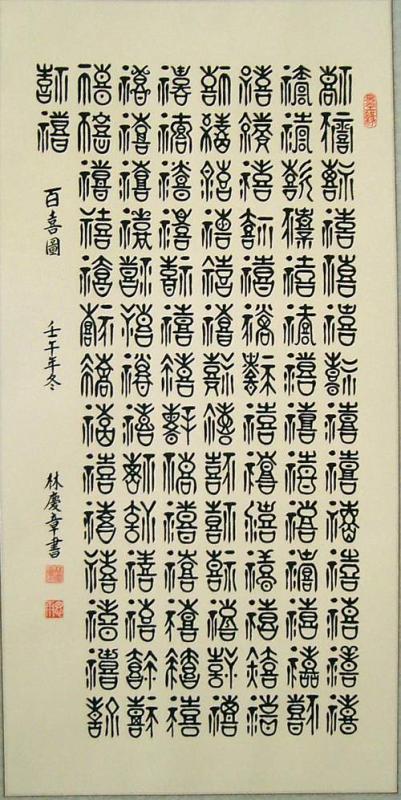 禧禧禧禧禧禧禧禧禧禧禧禧禧禧
禧禧禧禧禧禧禧禧禧禧禧禧禧禧
禧禧禧禧禧禧禧禧禧禧禧禧禧禧
禧禧禧禧禧禧禧禧禧禧禧禧禧禧
禧禧禧禧禧禧禧禧禧禧禧禧禧禧
禧禧禧禧禧禧禧禧禧禧禧禧禧禧
禧禧禧禧禧禧禧禧禧禧禧禧禧禧
禧禧 百喜圖 壬午年冬 林慶章書